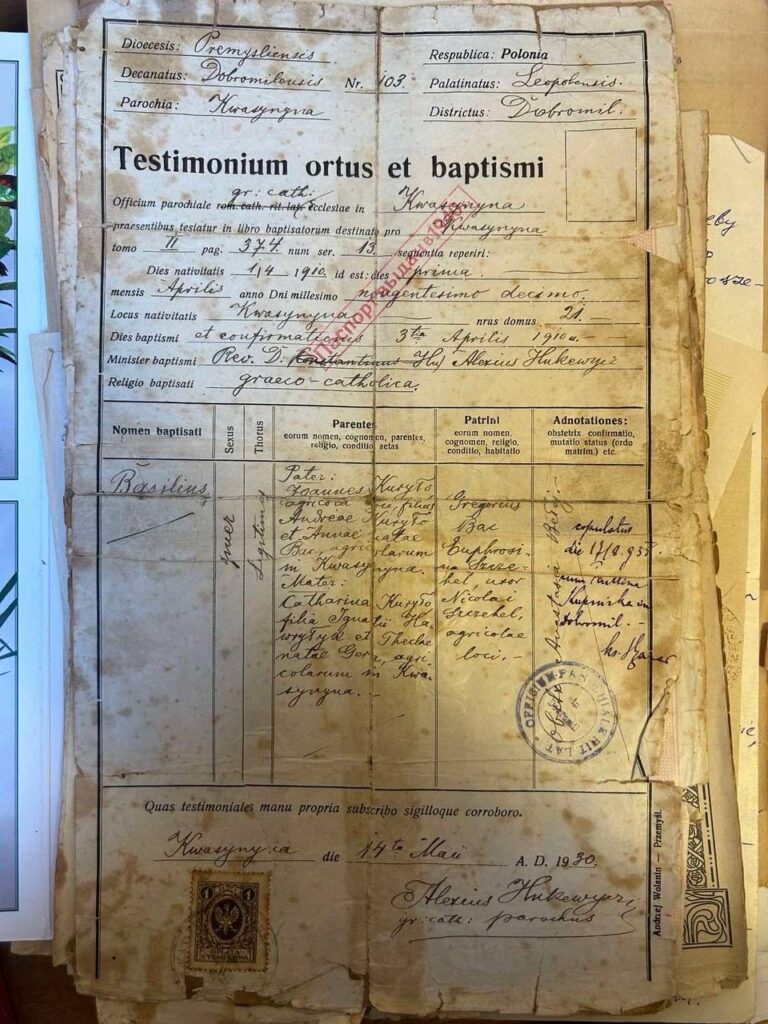 Dioecesis: Premysliensis
Respublica: Polonia
Decanatus: Dobromilensis Nr. 103.
Palatinatus: Leopolensis.
Parochia: Kwasynyna
Districtus: Dobromil.
Testimonium ortus et baptismi
gr: cath:
Officium parochiale rom. cath. rit. lat. ecclesiae in Kwasynyna
praesentibus testatur in libro baptisatorum destinato pro Kwasynyna
tomo II pag. 374 num ser. 13. sequentia reperiri:
Dies nativitatis 1/4 1910. id est: dies prima
mensis Aprilis anno Dni millesimo nongentesimo decimo.
Locus nativitatis Kwasynyna nrus domus 21.
Dies baptismi et confirmationis 3tia Aprilis 1910 a.
Minister baptismi Rev. D. Konstantinus Alexius Hukewycz
Religio baptisati graeco-catholica.
Паспорт выдан в 19
Nomen baptisati
Sexus
Thorus
Parentes
eorum nomen, cognomen, parentes,
religio, conditio, aetas
Patrini
eorum nomen,
cognomen, religio,
conditio, habitatio
Adnotationes:
obstetrix confirmatio,
mutatio status (ordo
matrim.) etc.
Basilius
puer
Legitimus
Pater:
Joannes Kuryło
agricola filius
Andreae Kuryło
et Annae natae
Bac, agricolarum
in Kwasynyna.
Mater:
Catharina Kuryło
filia Ignatii Ha-
wryłyk et Theclae
natae Gerz, agri-
colarum in Kwa-
synyna.
Gregorius
Bac
Euphrosi-
na Szcze-
bel, uxor
Nicolai
Szczebel,
agricolae
loci. -
Anastasia
copulatus
die
cum
in
Dobromil. -
OFFICIUM PAROCHIALE RIT. LAT.
Quas testimoniales manu propria subscribo sigilloque corroboro.
Kwasynyna die 14to Maii A. D. 1930.
Alexius Hukewycz
gr: cath: parochus
1 1
OPŁATA
STEMPLOWA
Andrzej Wolanin — Przemyśl.